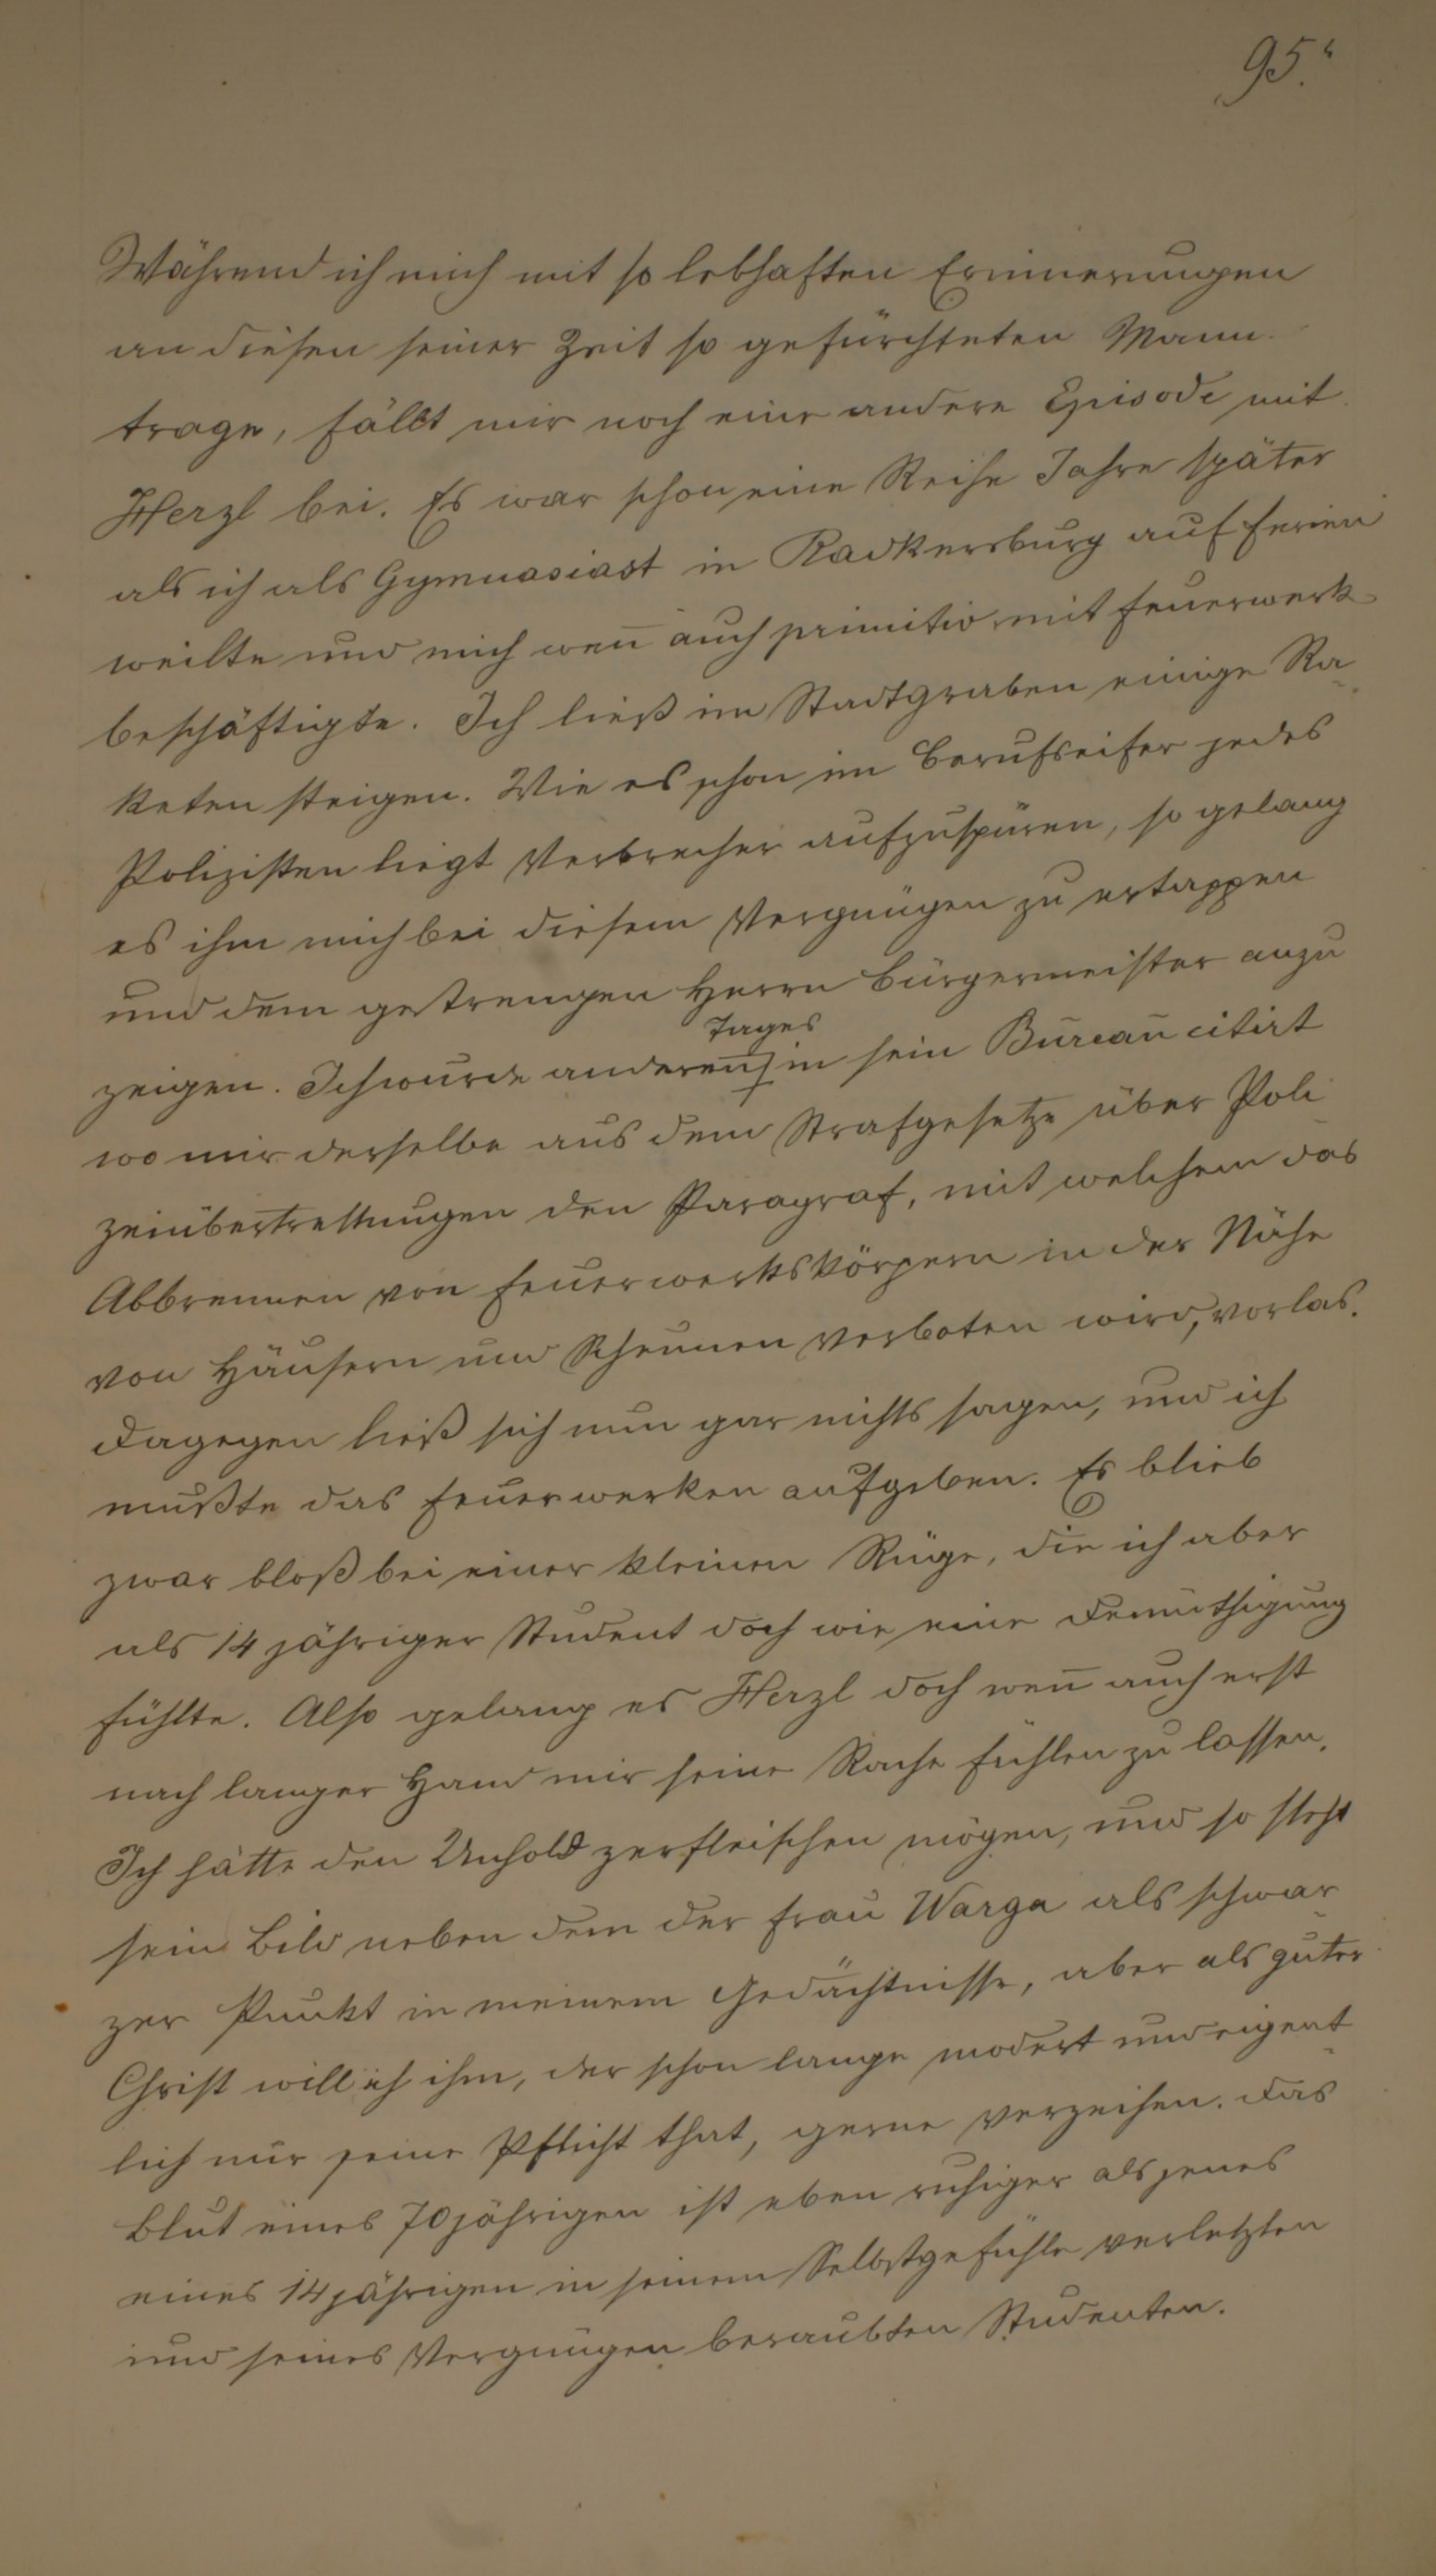 95.
Während ich mich mit so lebhaften Erinnerungen
an diesen seiner Zeit so gefürchteten Mann
trage, fällt mir noch eine andere Episode mit
Herzl bei. Es war schon eine Reihe Jahre später
als ich als Gymnasiast in Radkersburg auf Ferien
weilte und mich weñ auch primitiv mit Feuerwerk
beschäftigte. Ich ließ im Stadtgraben einige Ra-
keten steigen. Wie es schon im Berufseifer jedes
Polizisten liegt Verbrecher aufzuspüren, so gelang
es ihm mich bei diesem Vergnügen zu ertappen
und dem gestrengen Herrn Bürgermeister anzu
Tages
zeigen. Ich wurde anderen in sein Bureau citirt
wo mir derselbe aus dem Strafgesetze über Poli
zeiübertrettungen den Paragraf, mit welchem das
Abbrennen von Feuerwerkskörpern in der Nähe
von Häusern und Scheunen verboten wird, vorlas.
Dagegen ließ sich nun gar nichts sagen, und ich
mußte das Feuerwerken aufgeben. Es blieb
zwar bloß bei einer kleinen Rüge, die ich aber
als 14 jähriger Student doch wie eine Demüthigung
fühlte. Also gelang es Herzl doch weñ auch erst
nach langer Hand mir seine Rache fühlen zu lassen.
Ich hätte den Unhold zerfleischen mögen, und so steht
sein Bild neben dem der Frau Warga als schwar-
zer Punkt in meinem Gedächtnisse, aber als guter
Christ will ich ihm, der schon lange modert und eigent-
lich nur seine Pflicht that, gerne verzeihen. Das
Blut eines 70jährigen ist eben ruhiger als jenes
eines 14jährigen in seinem Selbstgefühle verletzten
und seines Vergnügen beraubten Studenten.